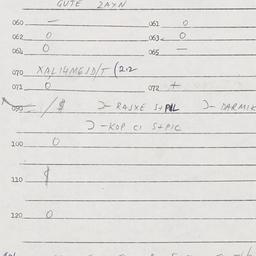 GUTE ZAYN
060 — 061 0
062 0 063 0
064 0 065 —
070 XAL14MGJD/T (212
071 0 072 +
099 / $ Ɔ-RAJXE S+PIL Ɔ-DARMIK
Ɔ-KOP CI S+PIC
100 0
110
120 0